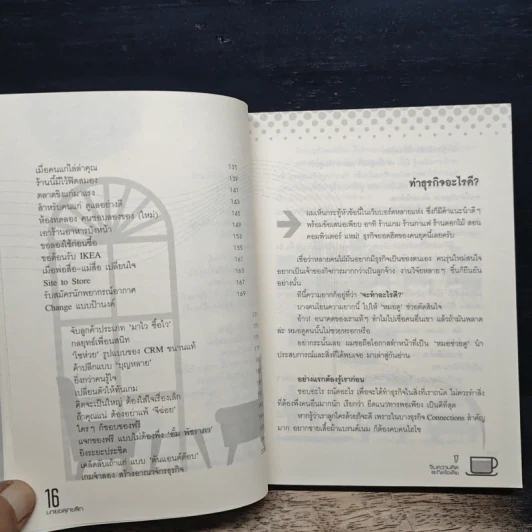 เมื่อคนแก่ไล่ล่าคุณ 137
ร้านนี้มีไว้ฟิตสมอง 139
ตลาดขิงแก่มาแรง 141
สำหรับคนแก่ ดูแลอย่างดี 143
ห้องทดลอง คนชอบลองของ (ใหม่) 145
เอาร้านอาหารบังหน้า
ขอลองใช้ก่อนซื้อ
ขอต้อนรับ IKEA 155
เมื่อพ่อสื่อ-แม่สื่อ เปลี่ยนใจ 161
Site to Store 165
รับสมัครนักพยากรณ์อากาศ 167
Change แบบป้านงค์ 169
จับลูกค้าประเภท "มาไว ซื้อไว"
กลยุทธ์เพื่อนสนิท
"โชห่วย" รูปแบบของ CRM ขนานแท้
ค้าปลีกแบบ "บุญหลาย"
ยิ่งกว่าคนรู้ใจ
เปลี่ยนตัวให้ทันเกม
คิดจะเป็นใหญ่ ต้องใช้ใจเรื่องเล็ก
ถ้าคุณแน่ ต้องอย่าแพ้ "จีฉ่อย"
ใครๆ ก็ชอบของฟรี
แจกของฟรี แบบไม่ต้องพึ่ง "อั้ม พัชราภา"
ยิงระยะประชิด
เคล็ดลับเถ้าแก่ แบบ "ตันแอนด์ต๊อบ"
เกมจำลอง สร้างอาณาจักรธุรกิจ
16
นายอดุกอธิก
ทำธุรกิจอะไรดี?
ผมเห็นกระทู้หัวข้อนี้ในเว็บบอร์ดหลายแห่ง ซึ่งก็มีคำแนะนำดีๆ
พร้อมข้อเสนอเพียบ อาทิ ร้านเกม ร้านกาแฟ ร้านดอกไม้ สอน
คอมพิวเตอร์ แหม! ธุรกิจยอดฮิตของคนยุคนี้เลยครับ
เชื่อว่าหลายคนไม่มีวันอยากมีธุรกิจเป็นของตนเอง คนรุ่นใหม่สนใจ
อยากเป็นเจ้าของกิจการมากกว่าเป็นลูกจ้าง งานวิจัยหลายๆ ชิ้นก็ยืนยัน
อย่างนั้น
ทีนี้ความยากก็อยู่ที่ว่า "จะทำอะไรดี?"
บางคนโยนความยากนี้ ไปให้ "หมอดู" ช่วยตัดสินใจ
อ้าว! อนาคตของเราแท้ๆ ทำไมไปเชื่อคนอื่นเขา แล้วถ้ามันพลาด
ล่ะ หมอดูคนนั้นไม่ช่วยหรอกหรือ
อย่ากระนั้นเลย ผมขอถือโอกาสทำหน้าที่เป็น "หมอช่วยดู" นำ
ประสบการณ์และสิ่งที่ได้พบเจอ มาเล่าสู่กันอ่าน
อย่างแรกต้องรู้เราก่อน
ชอบอะไร ถนัดอะไร เพื่อจะได้ทำธุรกิจในสิ่งที่เราถนัด ไม่ควรทำสิ่ง
ที่ต้องพึ่งคนอื่นมากนัก เรียกว่า ยึดแนวทางพอเพียง เป็นดีที่สุด
หากรู้ว่าเราลูกใครด้วยก็จะดี เพราะในบางธุรกิจ Connections สำคัญ
มาก อยากขายเสื้อผ้าแบรนด์เนม ก็ต้องคบคนไฮโซ
17
จิบความคิด